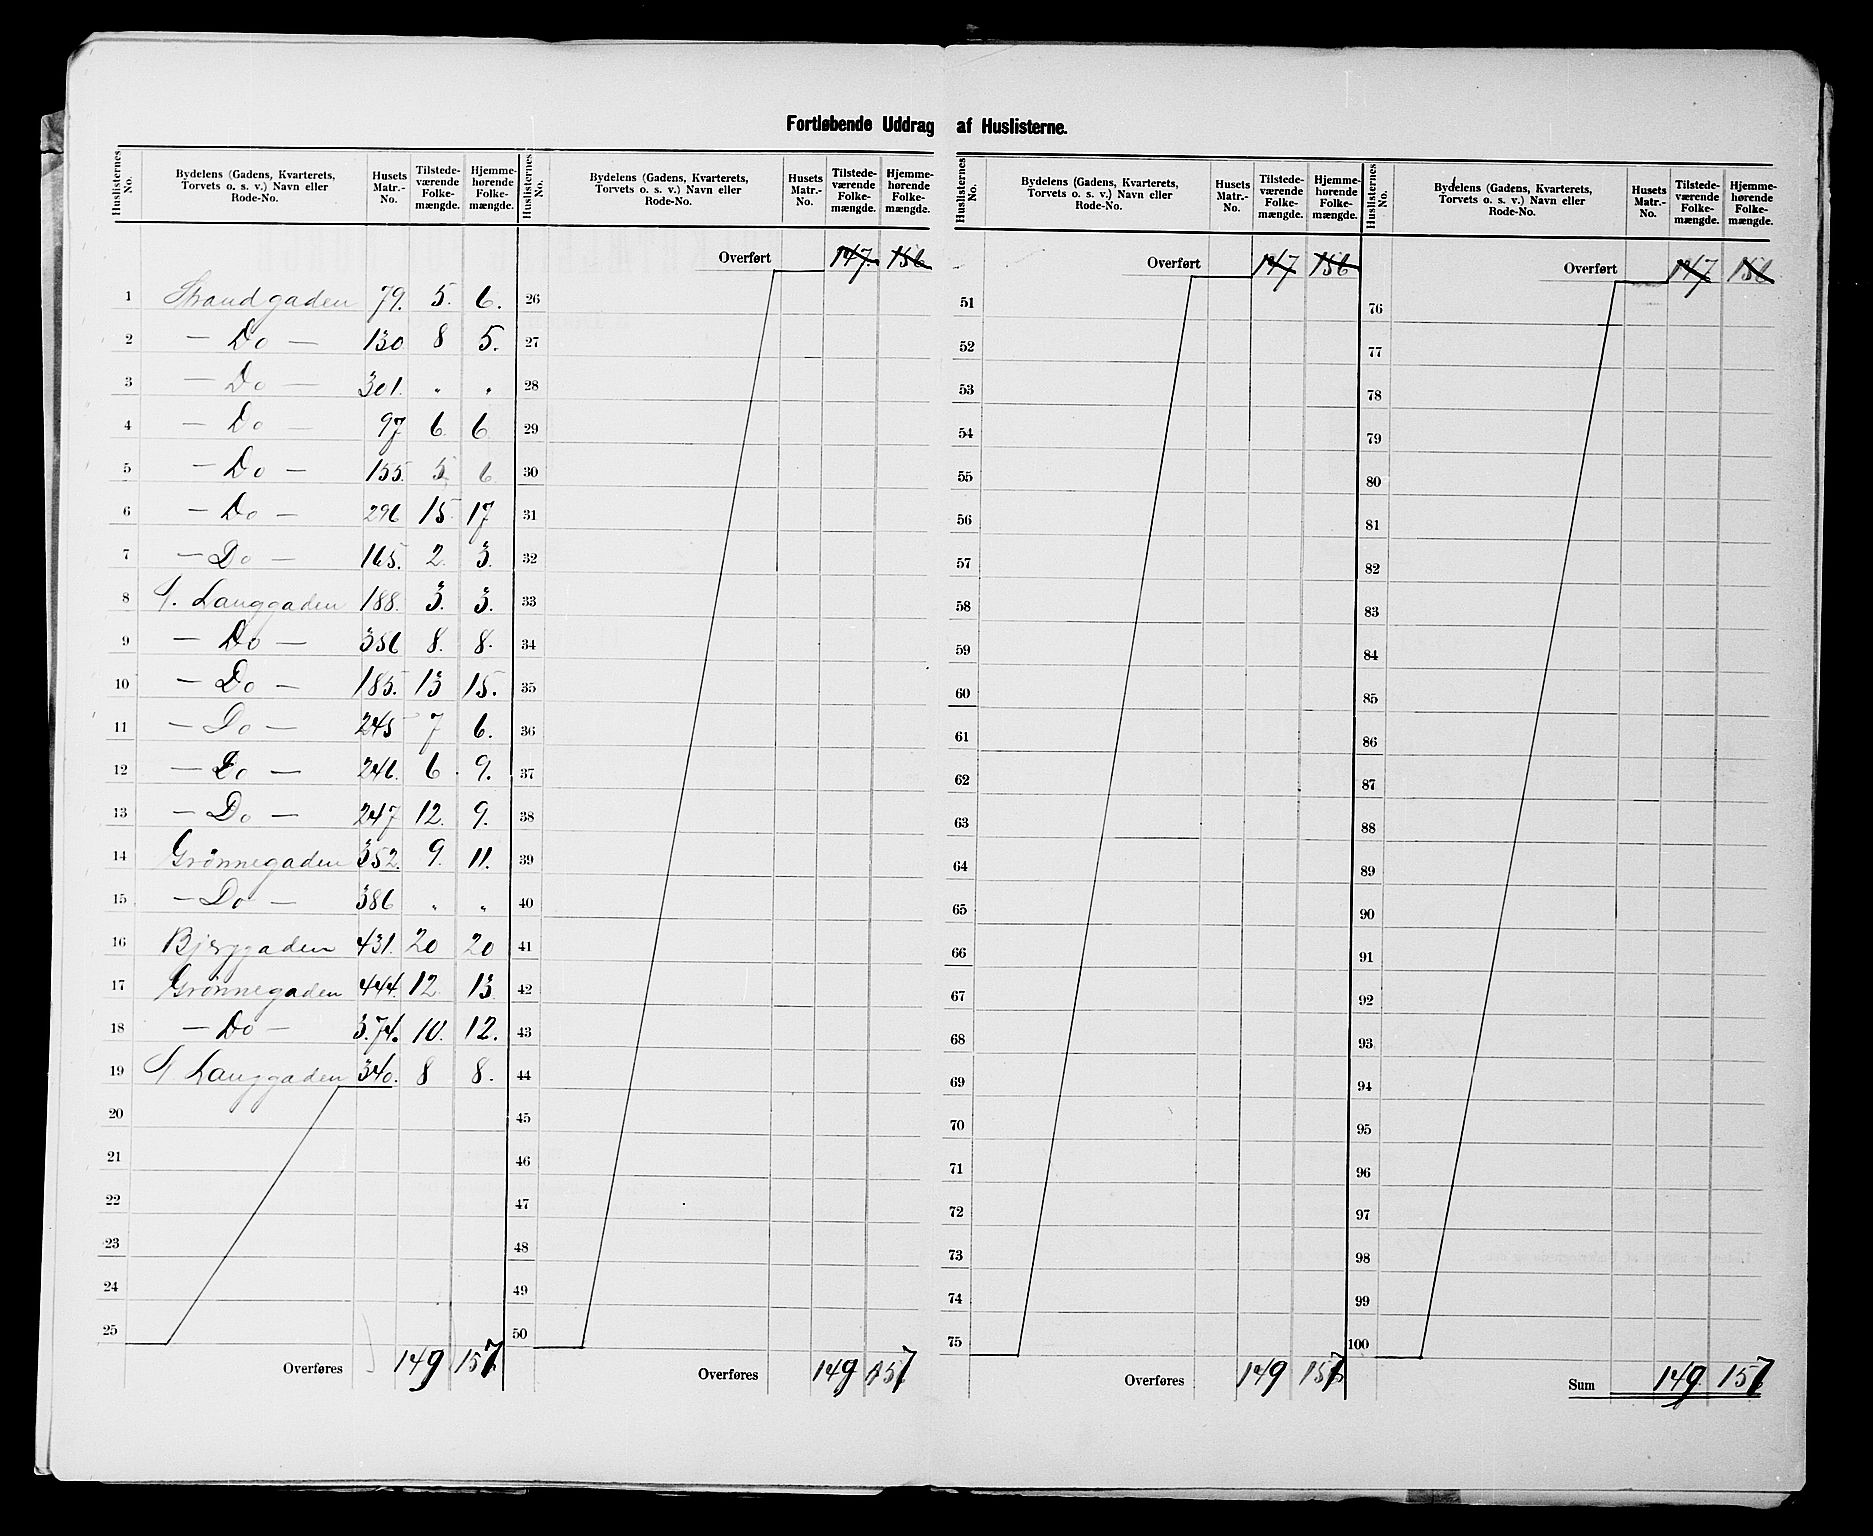 Fortløbende Uddrag af Huslisterne.
Huslisternes No. Bydelens (Gadens, Kvarterets, Torvets o. s. v.) Navn eller Rode-No. Husets Matr.-No. Tilstedeværende Folkemængde. Hjemmehørende Folkemængde.
1 Strandgaden 79. 5. 6.
2 — Do — 130 8 5.
3 — Do — 301. „ „
4 — Do — 97 6. 6
5 — Do — 155. 5 6
6 — Do — 296 15 17
7 — Do — 165. 2. 3.
8 S. Langgaden 188. 3. 3.
9 — Do — 356 8. 8.
10 — Do — 185. 13 15.
11 — Do — 245 7 6.
12 — Do — 246. 6. 9.
13 — Do — 247 12. 9.
14 Grönnegaden 352. 9. 11.
15 — Do — 386 „ „
16 Bjerggaden 431. 20 20
17 Grönnegaden 444. 12. 13
18 — Do — 374. 10. 12.
19 S. Langgaden 340. 8 8.
20
21
22
23
24
25
Overføres 149 157
Huslisternes No. Bydelens (Gadens, Kvarterets, Torvets o. s. v.) Navn eller Rode-No. Husets Matr.-No. Tilstedeværende Folkemængde. Hjemmehørende Folkemængde.
Overført 147. 156
26
27
28
29
30
31
32
33
34
35
36
37
38
39
40
41
42
43
44
45
46
47
48
49
50
Overføres 149 157
Huslisternes No. Bydelens (Gadens, Kvarterets, Torvets o. s. v.) Navn eller Rode-No. Husets Matr.-No. Tilstedeværende Folkemængde. Hjemmehørende Folkemængde.
Overført 147 156
51
52
53
54
55
56
57
58
59
60
61
62
63
64
65
66
67
68
69
70
71
72
73
74
75
Overføres 149 157
Huslisternes No. Bydelens (Gadens, Kvarterets, Torvets o. s. v.) Navn eller Rode-No. Husets Matr.-No. Tilstedeværende Folkemængde. Hjemmehørende Folkemængde.
Overført 147 156
76
77
78
79
80
81
82
83
84
85
86
87
88
89
90
91
92
93
94
95
96
97
98
99
100
Sum 149. 157